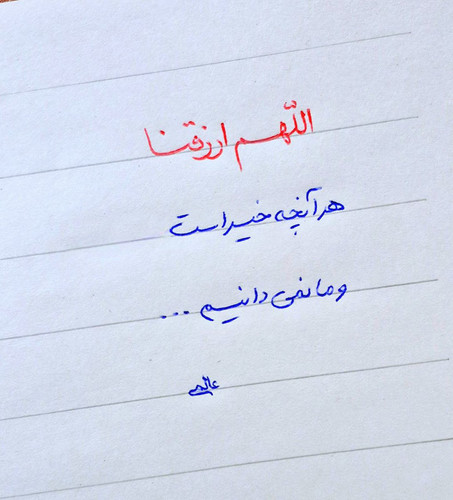 اللّهم ارزقنا
هر آنچه خیر است
و ما نمی دانیم ...
عالمی